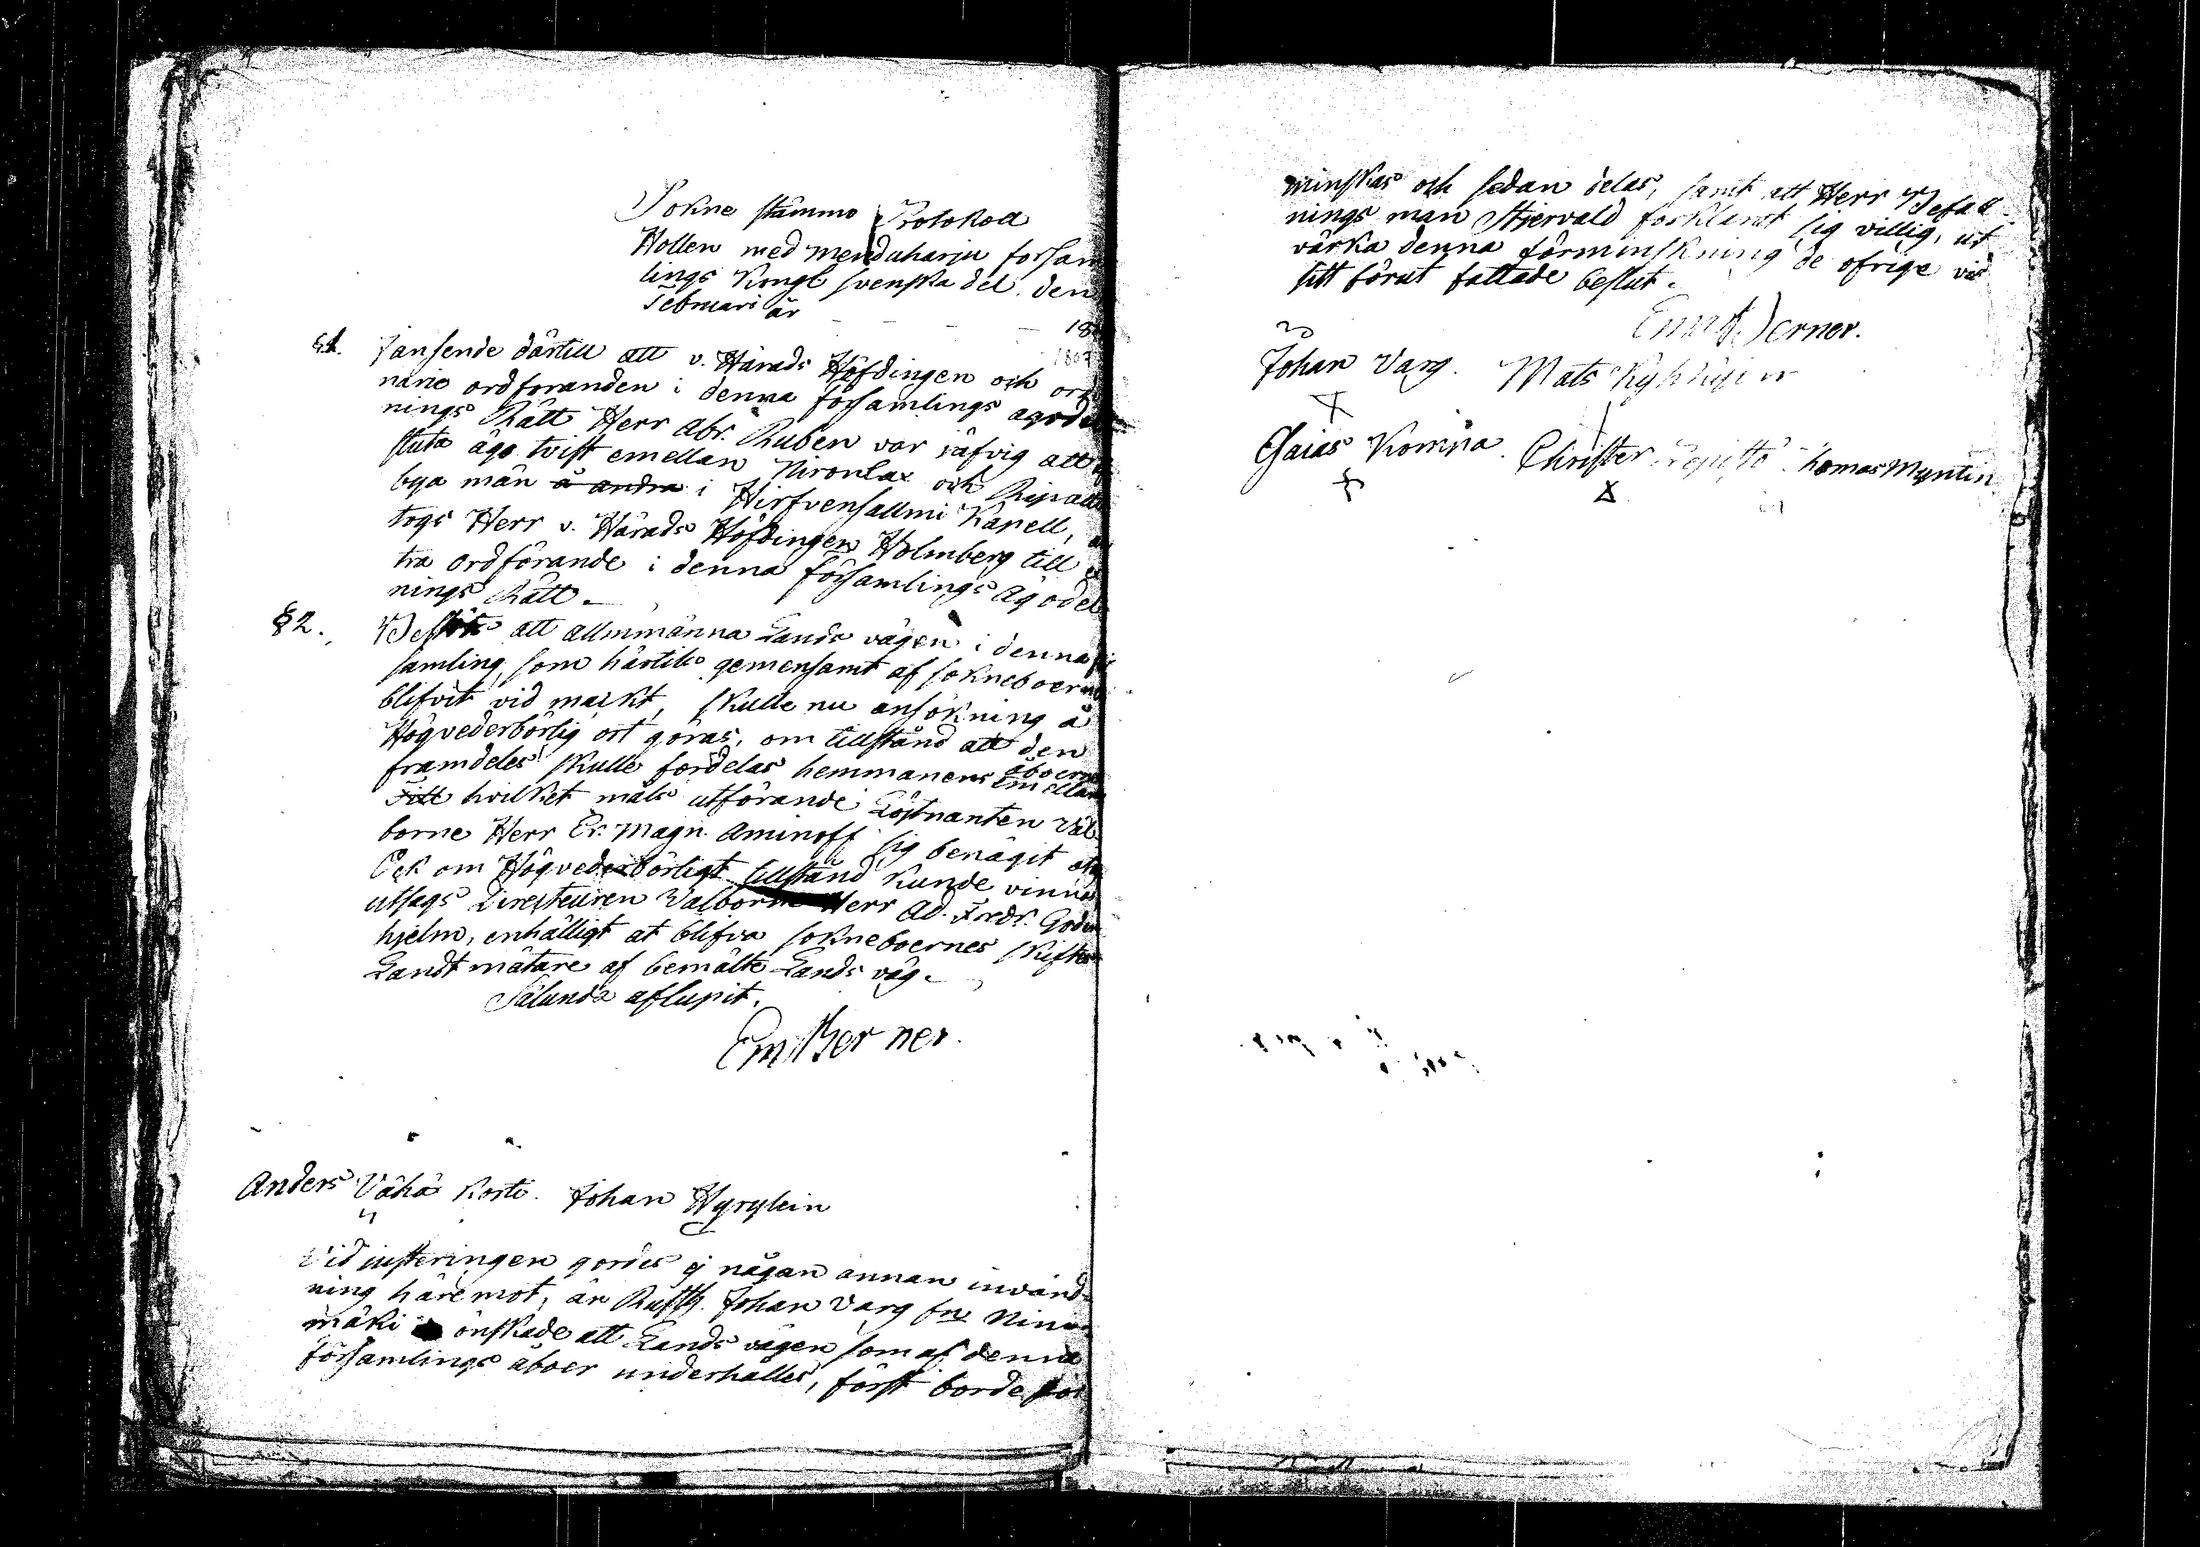 Sokne stämmo Protokoll
Hollen med mendaharju försam
lings Kongl svenska del. den
Februari år 18
1807
§1. Janseende därtill att v. Härads Höfdingen och ordi
narie ordföranden i denna församlings ägodel
nings Rätt Herr Abr. Ruben var jäfvig att
sluta ägo tvist emellan och Ripa
bya män å andra i Hirfvensallmi Kapell,
togs Herr v. Härads Höfdingen Holmberg till
tra ordförande i denna församlings Ägodel
nings Rätt.
§2. Beslöts att allmmänna Lands vägen i denna för
samling, som härtils gemensamt af sokneboerne
blifvit vid makt, skulle nu ansökning å
Högvederbörlig ort göras, om tillstånd att den
framdeles skulle fördelas hemmanens åboerne
emellan
Till hvilket måls utförande Löjtnanten Väl
borne Herr Er. Magn. Aminoff sig benägit
Ock om Högvederbörligt tillstånd kunde vinnas
uttags Directeuren Välborne Herr Ad. Fredr. Goden
hjelm, enhälligt at blifva sokneboernes skiftes
Landtmätare af bemälte Lands väg.
Sålunda aflupit.
Em Berner.
Anders Vähä Korti. Johan Hyrylein
Vid justeringen gordes ej någan annan invänd
ning häremot, än Rustth. Johan Varg frn Nin
mäki önskade att Lands vägen som af denna
församlings åboer underhålles, först borde för
minskas och sedan delas, samt att Herr Befall
nings man Stjervald förklarat sig villig, ut
värka denna förminskning de öfrige vid
sitt förut fattade beslut.
Em Berner.
Johan Varg. Mats
Esaias Komina. Christer Thomas Myntin